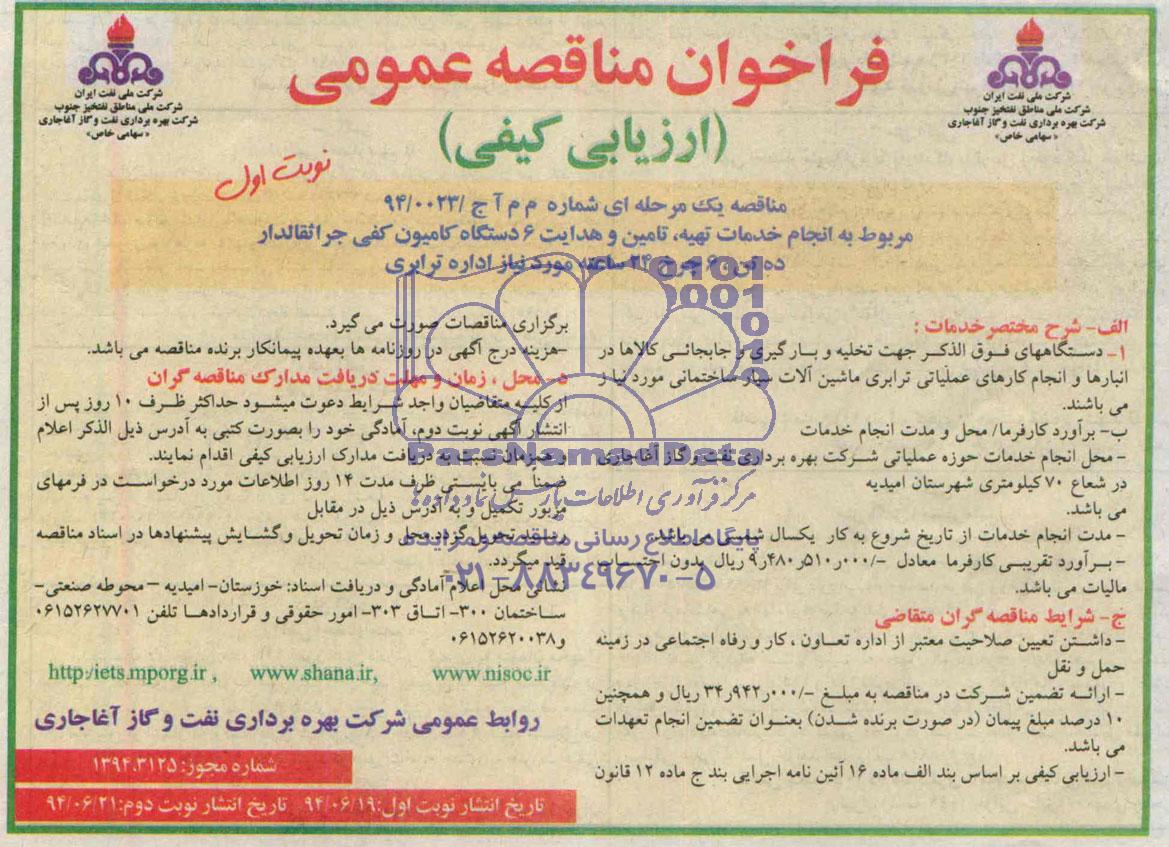 شرکت ملی نفت ایران
شرکت ملی مناطق نفتخیز جنوب
شرکت بهره برداری نفت و گاز آغاجاری
«سهامی خاص»
فراخوان مناقصه عمومی
(ارزیابی کیفی)
شرکت ملی نفت ایران
شرکت ملی مناطق نفتخیز جنوب
شرکت بهره برداری نفت و گاز آغاجاری
«سهامی خاص»
نوبت اول
مناقصه یک مرحله ای شماره م م آ ج /۹۴/۰۰۲۳
مربوط به انجام خدمات تهیه، تامین و هدایت ۶ دستگاه کامیون کفی جراثقالدار
ده تن، ۶ چرخ ۲۴ ساعته مورد نیاز اداره ترابری
الف- شرح مختصر خدمات :
۱- دستگاههای فوق الذکر جهت تخلیه و بارگیری و جابجائی کالاها در
انبارها و انجام کارهای عملیاتی ترابری ماشین آلات سیار ساختمانی مورد نیاز
می باشند.
ب- برآورد کارفرما/ محل و مدت انجام خدمات
- محل انجام خدمات حوزه عملیاتی شرکت بهره برداری نفت و گاز آغاجاری
در شعاع ۷۰ کیلومتری شهرستان امیدیه
می باشد.
- مدت انجام خدمات از تاریخ شروع به کار یکسال شمسی می باشد.
- برآورد تقریبی کارفرما معادل -/۹٫۴۸۰٫۵۱۰٫۰۰۰ ریال بدون احتساب
مالیات می باشد.
ج- شرایط مناقصه گران متقاضی
- داشتن تعیین صلاحیت معتبر از اداره تعاون ، کار و رفاه اجتماعی در زمینه
حمل و نقل
- ارائه تضمین شرکت در مناقصه به مبلغ -/۳۴٫۹۴۲٫۰۰۰ ریال و همچنین
۱۰ درصد مبلغ پیمان (در صورت برنده شدن) بعنوان تضمین انجام تعهدات
می باشد.
- ارزیابی کیفی بر اساس بند الف ماده ۱۶ آئین نامه اجرایی بند ج ماده ۱۲ قانون
برگزاری مناقصات صورت می گیرد.
-هزینه درج آگهی در روزنامه ها بعهده پیمانکار برنده مناقصه می باشد.
د- محل ، زمان و مهلت دریافت مدارک مناقصه گران
از کلیه متقاضیان واجد شرایط دعوت میشود حداکثر ظرف ۱۰ روز پس از
انتشار آگهی نوبت دوم، آمادگی خود را بصورت کتبی به آدرس ذیل الذکر اعلام
و همزمان نسبت به دریافت مدارک ارزیابی کیفی اقدام نمایند.
ضمناً می بایستی ظرف مدت ۱۴ روز اطلاعات مورد درخواست در فرمهای
مزبور تکمیل و به آدرس ذیل در مقابل
رسید تحویل گردد.محل و زمان تحویل و گشایش پیشنهادها در اسناد مناقصه
قید میگردد.
نشانی محل اعلام آمادگی و دریافت اسناد: خوزستان- امیدیه – محوطه صنعتی-
ساختمان ۳۰۰- اتاق ۳۰۳- امور حقوقی و قراردادها تلفن ۰۶۱۵۲۶۲۷۷۰۱
و۰۶۱۵۲۶۲۰۰۳۸
http:/iets.mporg.ir , www.shana.ir, www.nisoc.ir
روابط عمومی شرکت بهره برداری نفت و گاز آغاجاری
شماره مجوز: ۱۳۹۴.۳۱۲۵
تاریخ انتشار نوبت اول:۹۴/۰۶/۱۹ تاریخ انتشار نوبت دوم:۹۴/۰۶/۲۱
ParsNamadData
مرکز فرآوری اطلاعات پارس نماد داده ها
پایگاه اطلاع رسانی مناقصه و مزایده
۰۲۱-۸۸۳۴۹۶۷۰-۵